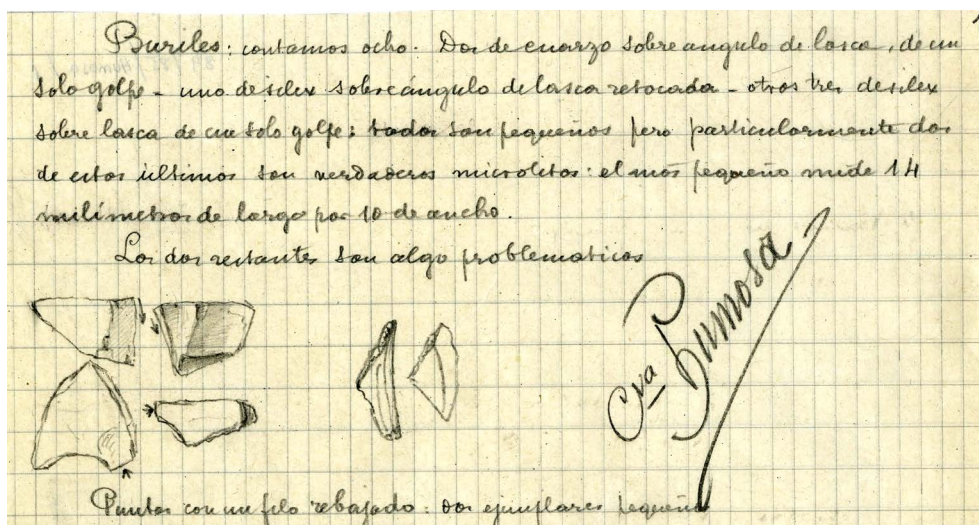 Buriles: contamos ocho. Dos de cuarzo sobre angulo de lasca, de un
solo golpe - uno de silex sobre ángulo de lasca retocada - otros tres de silex
sobre lasca de un solo golpe: todos son pequeños pero particularmente dos
de estos últimos son verdaderos microlitos: el mas pequeño mide 14
milímetros de largo por 10 de ancho.
Los dos restantes son algo problematicos
Cva Bumosa
Puntas con un filo rebajado: dos ejemplares pequeños